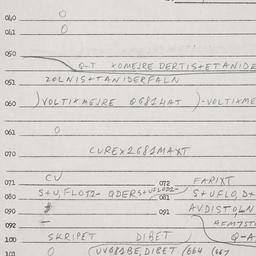 040 0
041 0
050
Q-T XOMEJRE DERTIS+ETANIDE
051 ZOLNIS+TANIDERFALN
060 )VOLTIXMEJRE Q681HAT )-VOLTIXME
061 0
070
CUREX2681MAXT
071 CU 072 FARIXT
080 S+U,FLOTZ- QDERS+UFLODZ- 081 S+UFLO,D+
090 # 091 AVDISTOLN
092 — AFM7ST
100 SKRIPET DIBET Q-A
101 0 (UV681BE,DIBET (664 (667